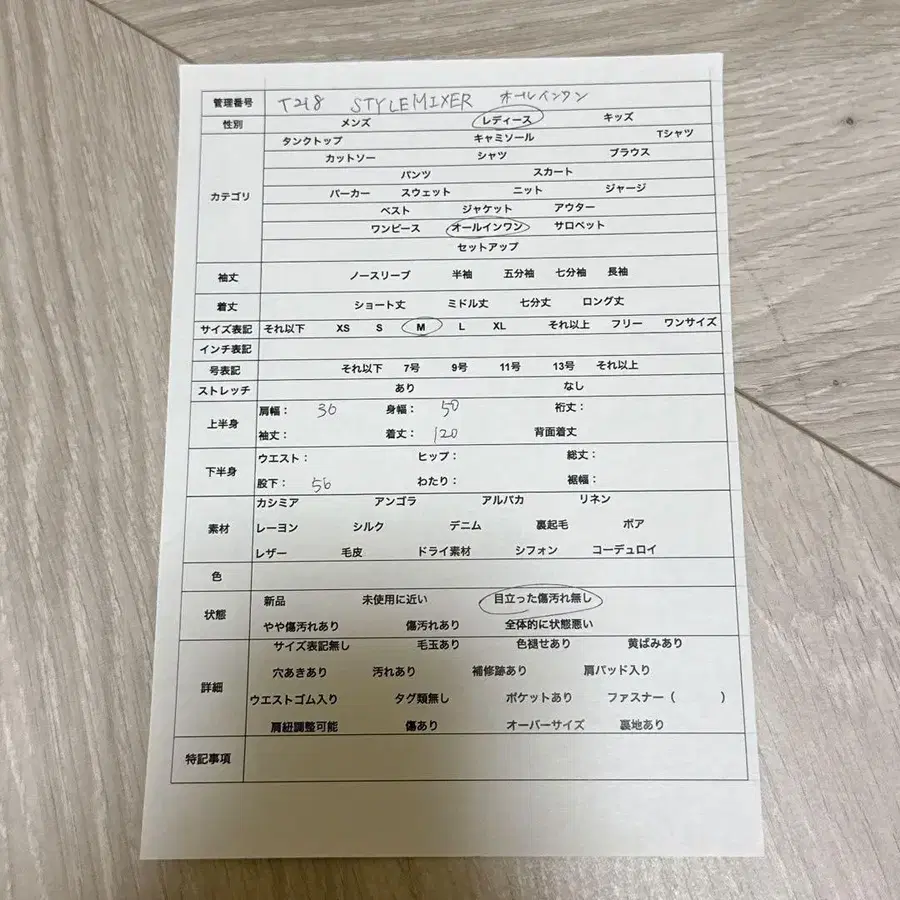 管理番号 T218 STYLEMIXER オールインワン
性別 メンズ レディース キッズ
タンクトップ キャミソール Tシャツ
カットソー シャツ ブラウス
パンツ スカート
カテゴリ パーカー スウェット ニット ジャージ
ベスト ジャケット アウター
ワンピース オールインワン サロペット
セットアップ
袖丈 ノースリーブ 半袖 五分袖 七分袖 長袖
着丈 ショート丈 ミドル丈 七分丈 ロング丈
サイズ表記 それ以下 XS S M L XL それ以上 フリー ワンサイズ
インチ表記
号表記 それ以下 7号 9号 11号 13号 それ以上
ストレッチ あり なし
上半身 肩幅： 36 身幅： 50 裄丈：
袖丈： 着丈： 120 背面着丈
下半身 ウエスト： ヒップ： 総丈：
股下： 56 わたり： 裾幅：
カシミア アンゴラ アルパカ リネン
素材 レーヨン シルク デニム 裏起毛 ボア
レザー 毛皮 ドライ素材 シフォン コーデュロイ
色
状態 新品 未使用に近い 目立った傷汚れ無し
やや傷汚れあり 傷汚れあり 全体的に状態悪い
サイズ表記無し 毛玉あり 色褪せあり 黄ばみあり
詳細 穴あきあり 汚れあり 補修跡あり 肩パッド入り
ウエストゴム入り タグ類無し ポケットあり ファスナー（ ）
肩紐調整可能 傷あり オーバーサイズ 裏地あり
特記事項